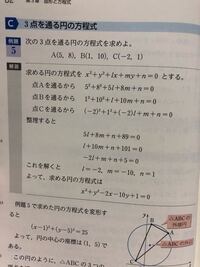 第3章 図形と方程式
C 3点を通る円の方程式
例題 5 次の3点を通る円の方程式を求めよ。
A(5, 8), B(1, 10), C(-2, 1)
解説 求める円の方程式を x²+y²+lx+my+n=0 とする。
点Aを通るから 5²+8²+5l+8m+n=0
点Bを通るから 1²+10²+l+10m+n=0
点Cを通るから (-2)²+1²+(-2)l+m+n=0
整理すると
5l+8m+n+89=0
l+10m+n+101=0
-2l+m+n+5=0
これを解くと l=-2, m=-10, n=1
よって、求める円の方程式は
x²+y²-2x-10y+1=0
例題5で求めた円の方程式を変形す
ると
(x-1)²+(y-5)²=25
よって、円の中心の座標は (1, 5) で
ある。
この円のように、△ABCの3つの
y
B
A
△ABCの
外接円
△ABCの外心